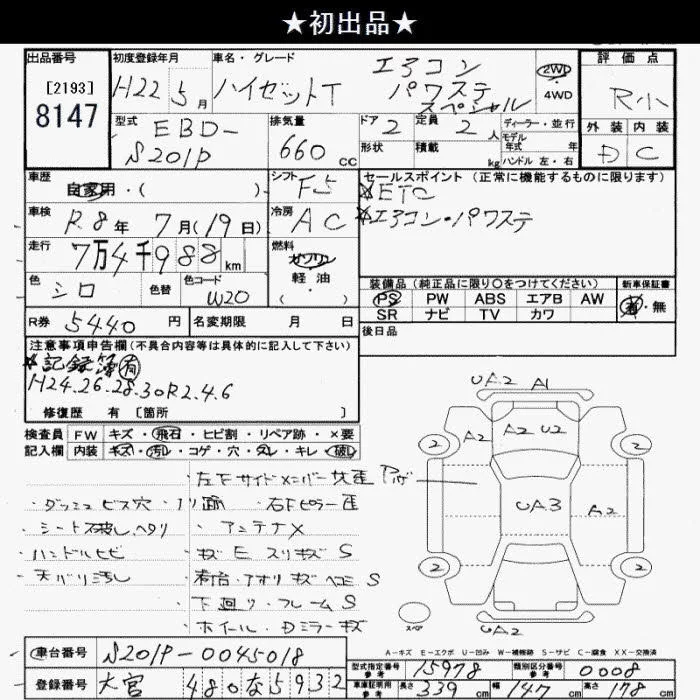 ★初出品★
出品番号
[2193]
8147
初度登録年月
H22 5月
車名・グレード
ハイゼットT
エアコン
パワステ
スペシャル
2WD
4WD
評価点
R小
外装 内装
D C
型式
EBD-
S201P
排気量
660 cc
ドア 2
定員 2人
形状 積載 kg
ディーラー・並行
モデル
年式 年
ハンドル 左・右
車歴
自家用・( )
シフト F5
車検
R8年 7月(19日)
冷房 AC
走行
7万4千988km
燃料
ガソリン
軽油
・( )
色 シロ
色替
色コード W20
R券 5440円
名変期限 月 日
セールスポイント (正常に機能するものに限ります)
※ETC
※エアコン・パワステ
装備品 (純正品に限り○をつけてください)
PS PW ABS エアB AW
SR ナビ TV カワ
新車保証書
有・無
後日品
注意事項申告欄(不具合内容等は具体的に記入して下さい)
※記録簿有
H24.26.28.30R2.4.6
修復歴 有 [箇所 ]
検査員 FW キズ・飛石・ヒビ割・リペア跡・×要
記入欄 内装 キズ・汚レ・コゲ・穴・スレ・キレ・破レ
左Fサイドメンバー
・ダッシュビス穴・ノリ面
・右Fピラー歪
・シートス破レ、ヘタリ
・アンテナ×
・ハンドルヒビ
・キズE スリキズS
・天バリ汚し
・荷台・アオリ キズヘコミS
・下廻り・フレームS
・ホイール・Dミラーキズ
UA2 A1
A2 A2 U2
2 2
UA3 A2
2 2
スペア
UA2
A-キズ E-エクボ U-凹み W-補修跡 S-サビ C-腐食 XX-交換済
車台番号 S201P-0045018
登録番号 大宮 480な5932
型式指定番号 参考 15978
類別区分番号 参考 0008
車体証明用 参考 長さ 339cm 幅 147cm 高さ 178cm